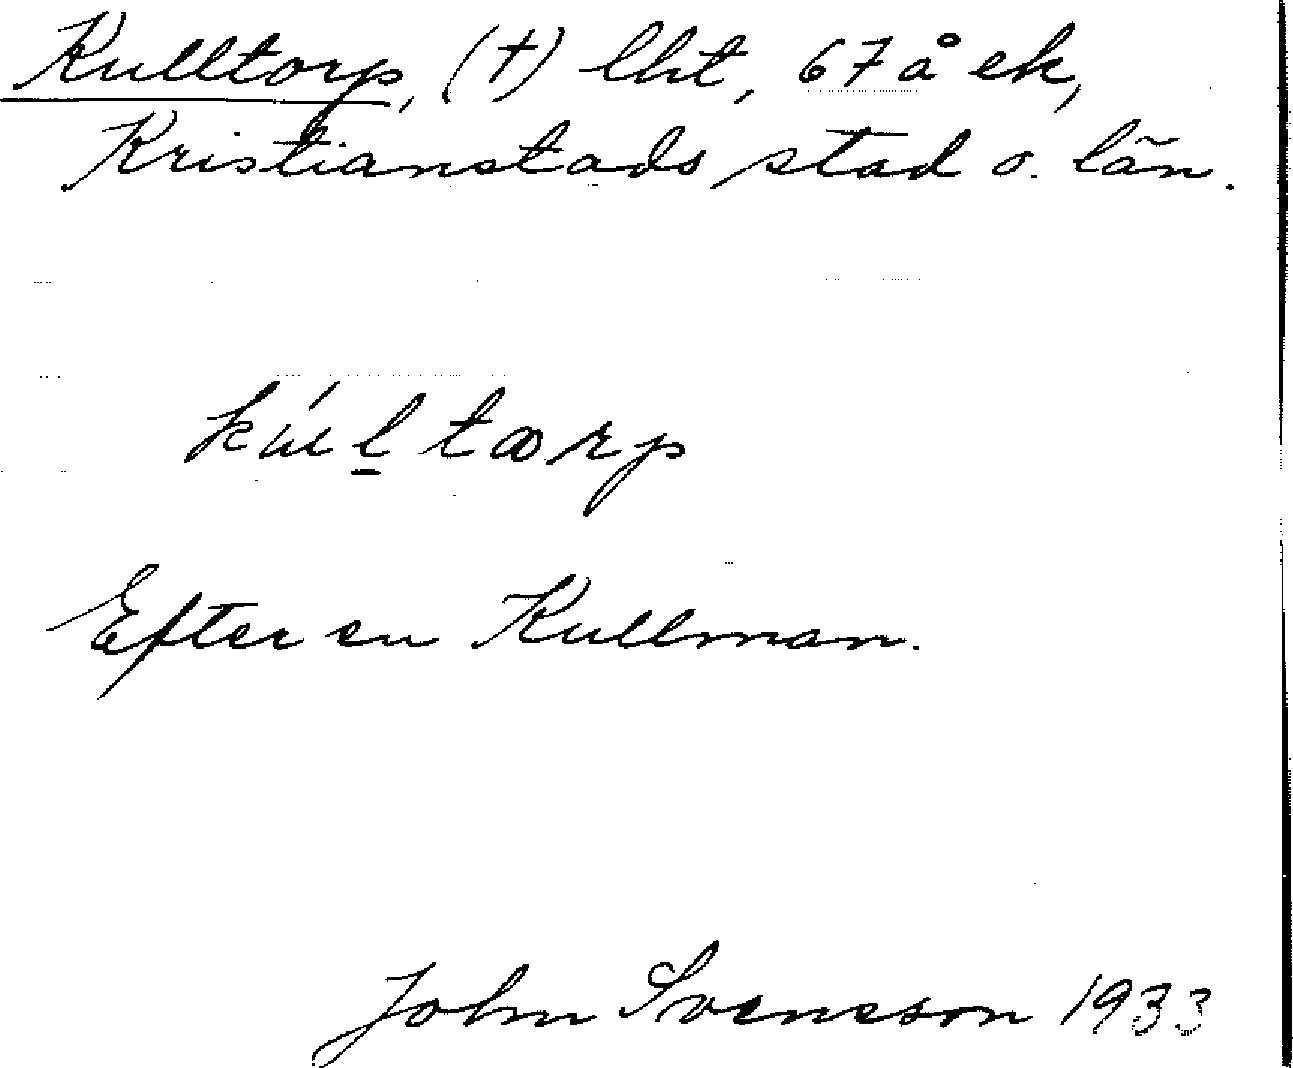 Kulltorp, (†) lht, 67 å ek,
Kristianstads stad o. län.
kúl̲tɷrp
Efter en Kullman.
John Svensson 1933